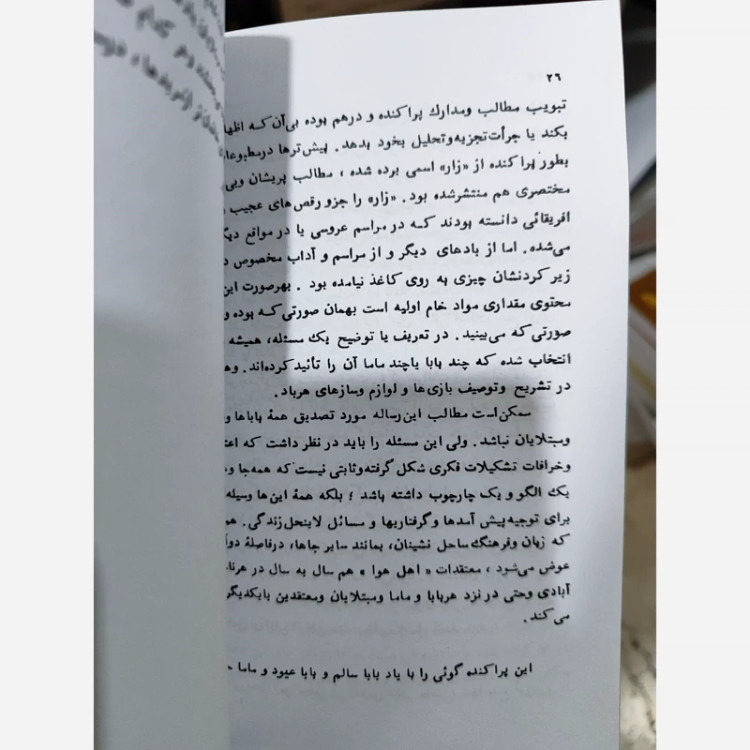 ۲۶
تبویب مطالب ومدارك پراکنده و درهم بوده بی‌آن‌که
بکند یا جرأت‌تجزیه‌وتحلیل بخود بدهد . پیش‌ترها
بطور پراکنده از «زار» اسمی برده شده ، مطالب پریشان
مختصری هم منتشرشده بود . «زار» را جزو رقص‌های عجیب
افریقائی دانسته بودند که در مراسم عروسی یا در مواقع
می‌شده . اما از بادهای دیگر و از مراسم و آداب مخصوص
زیر کردنشان چیزی به روی کاغذ نیامده بود . بهرصورت
محتوی مقداری مواد خام اولیه است بهمان صورتی‌که بوده و
صورتی‌که می‌بینید . در تعریف یا توضیح یك مسئله، همیشه
انتخاب شده که چند بابا یاچند ماما آن را تأئید کرده‌اند .
در تشریح وتوصیف بازی‌ها و لوازم وسازهای هرباد .
ممکن است مطالب این‌رساله مورد تصدیق همهٔ باباها و
ومبتلایان نباشد . ولی این مسئله را باید در نظر داشت که
وخرافات تشکیلات فکری شکل گرفته‌وثابتی نیست که همه‌جا
یك الگو و یك چارچوب داشته باشد ؛ بلکه همهٔ این‌ها وسیله
برای توجیه‌پیش آمدها وگرفتاریها و مسائل لاینحل‌زندگی .
که زبان وفرهنگ ساحل نشینان، بمانند سایر جاها، درفاصلهٔ
عوض می‌شود ، معتقدات « اهل هوا » هم سال به سال در
آبادی وحتی در نزد هربابا و ماما ومبتلایان ومعتقدین بایکدیگر
می‌کند .
این پراکنده گوئی را با یاد بابا سالم و بابا عیود و ماما